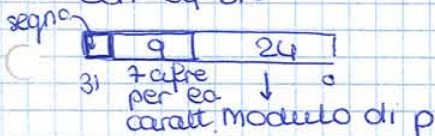 segno
9 24
31 7 cifre 0
per ea
caratt. modulo di p